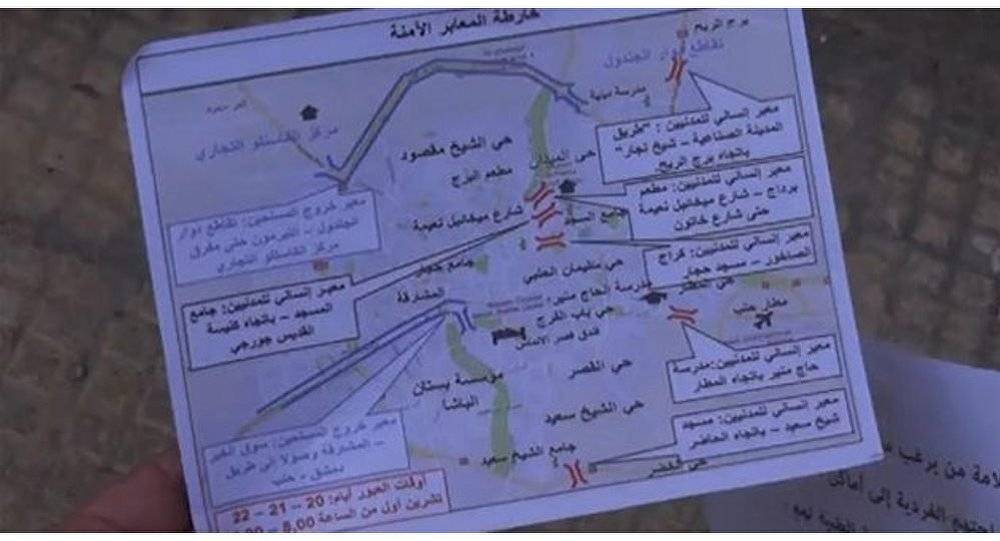 خارطة المعابر الآمنة
برج الريح
تقاطع دوار الجندول
مدرسة مهنية
مركز الكاستلو التجاري
حي الشيخ مقصود
حي الميدان
مطعم البرج
معبر إنساني للمدنيين: "طريق
المدينة الصناعية – شيخ نجار"
باتجاه برج الريح
معبر إنساني للمدنيين: مطعم
برداج – شارع ميخائيل نعيمة
حتى شارع خاتون
شارع ميخائيل نعيمة
جامع السيد
معبر خروج المسلحين: تقاطع دوار
الجندول – الليرمون حتى مفرق
مركز الكاستلو التجاري
معبر إنساني للمدنيين: كراج
الصاخور – مسجد حجار
جامع حجار
حي سليمان الحلبي
المشارقة
مدرسة الحاج منير
حي باب الفرج
معبر إنساني للمدنيين: جامع
المسجد – باتجاه كنيسة
القديس جورجي
مطار حلب
معبر إنساني للمدنيين: مدرسة
حاج منير باتجاه المطار
حي القصر
مؤسسة بستان
الباشا
حي الشيخ سعيد
معبر إنساني للمدنيين: مسجد
شيخ سعيد – باتجاه الحاضر
جامع الشيخ سعيد
معبر خروج المسلحين: سوق الخير
– المشارقة وصولا إلى طريق
دمشق - حلب
أوقات العبور أيام: 20 – 21 – 22
تشرين أول من الساعة 8,00
من يرغب
الفردية إلى أماكن
الطبية